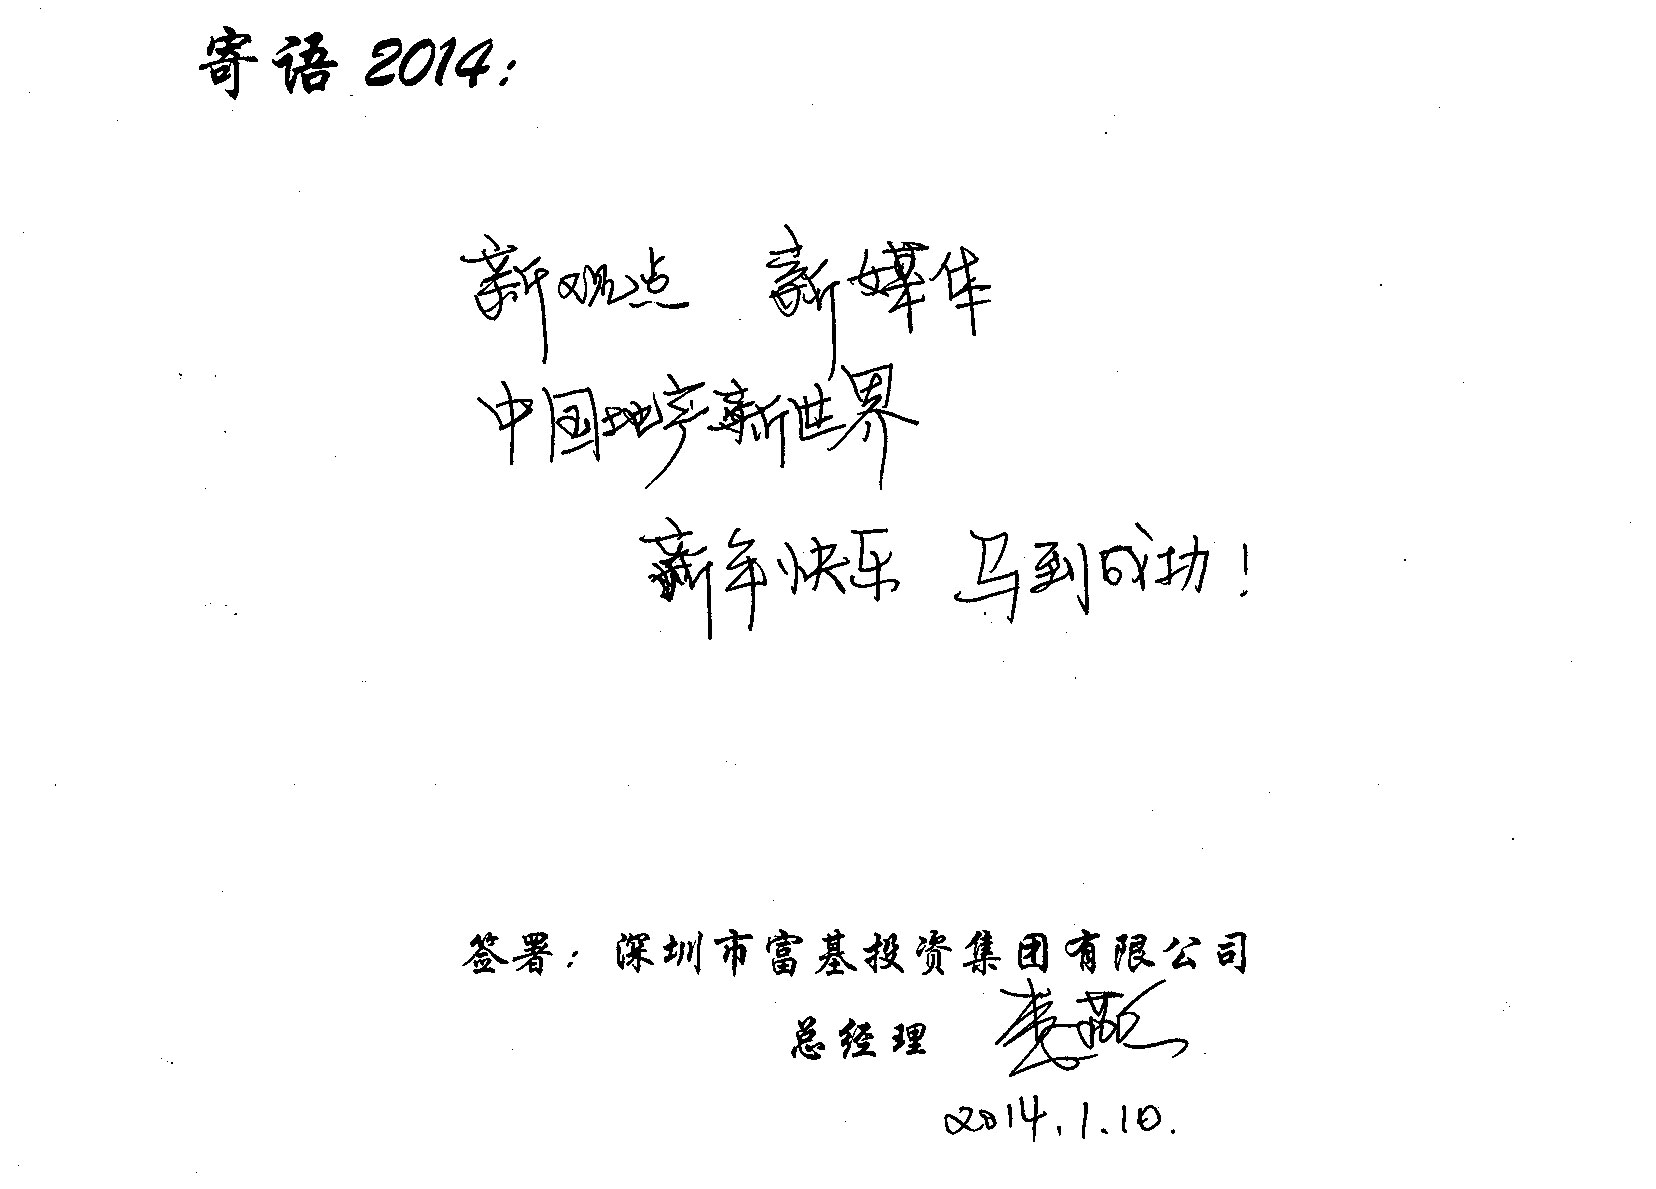 寄语 2014:
新观点 新媒体
中国地产新世界
新年快乐 马到成功!
签署:深圳市富基投资集团有限公司
总经理
2014.1.10.